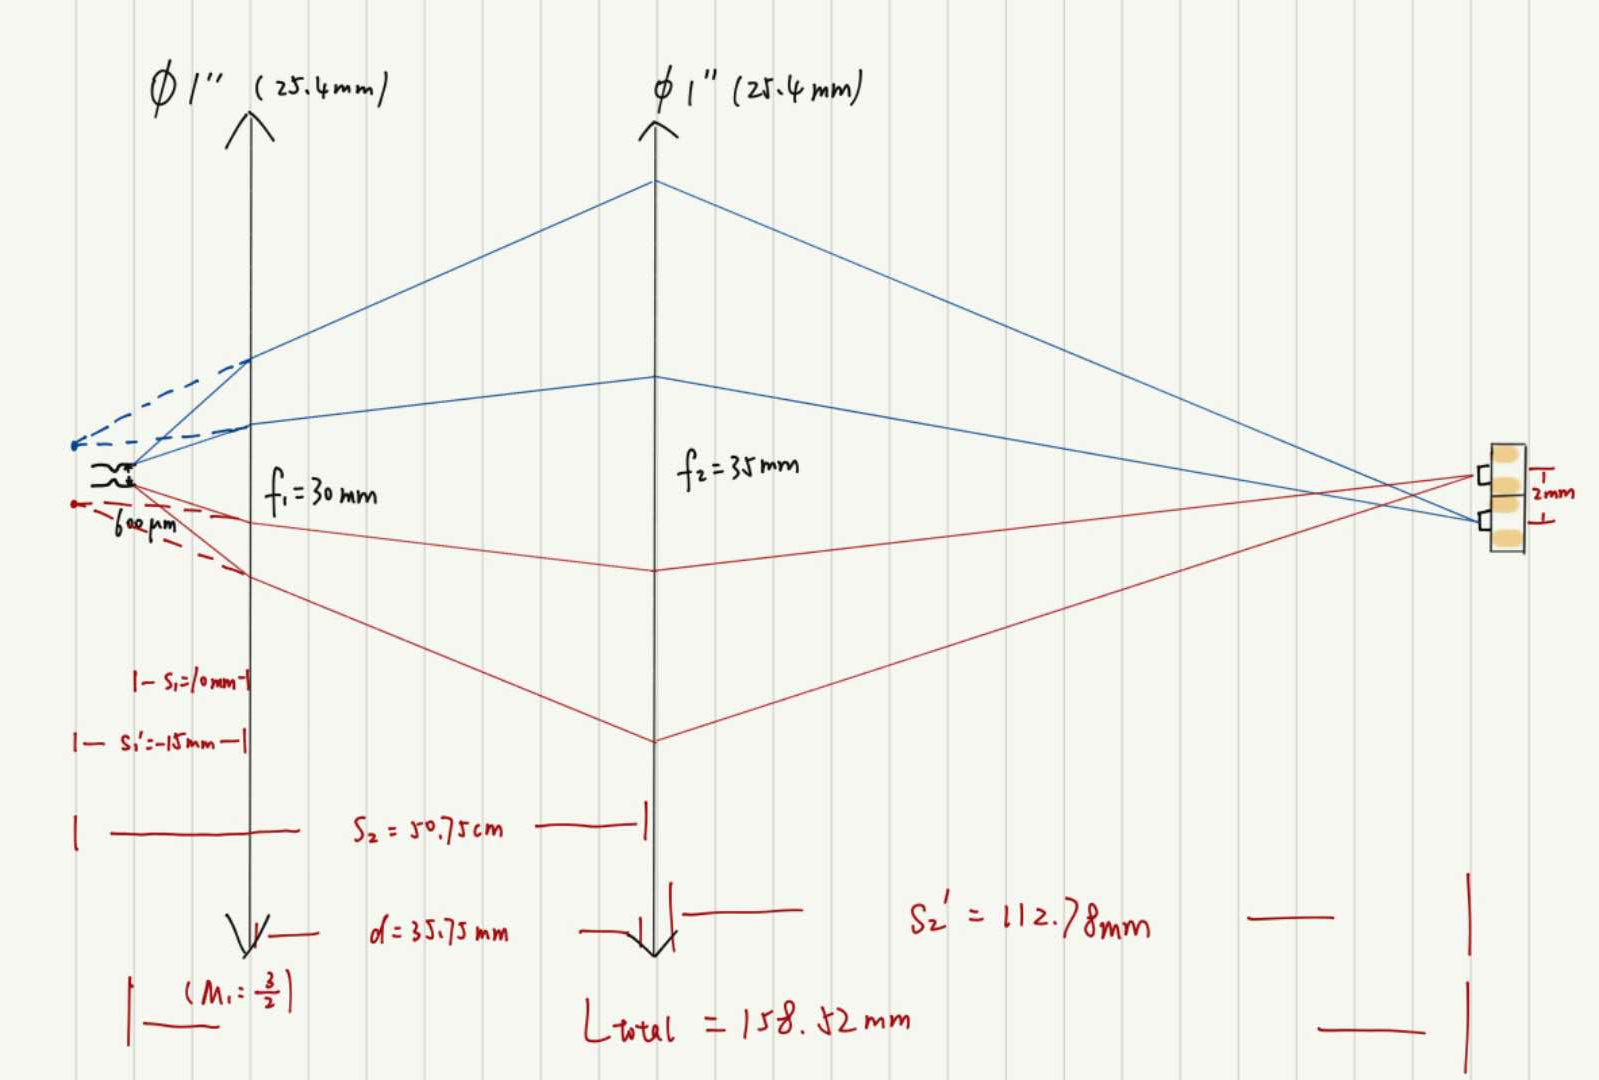 ϕ 1" (25.4mm)
ϕ 1" (25.4mm)
f₁=30mm
f₂=35mm
2mm
600μm
S₁=10mm
S₁'=-15mm
S₂=50.75cm
d=35.75mm
S₂'=112.78mm
(M₁=3/2)
Ltotal = 158.52mm